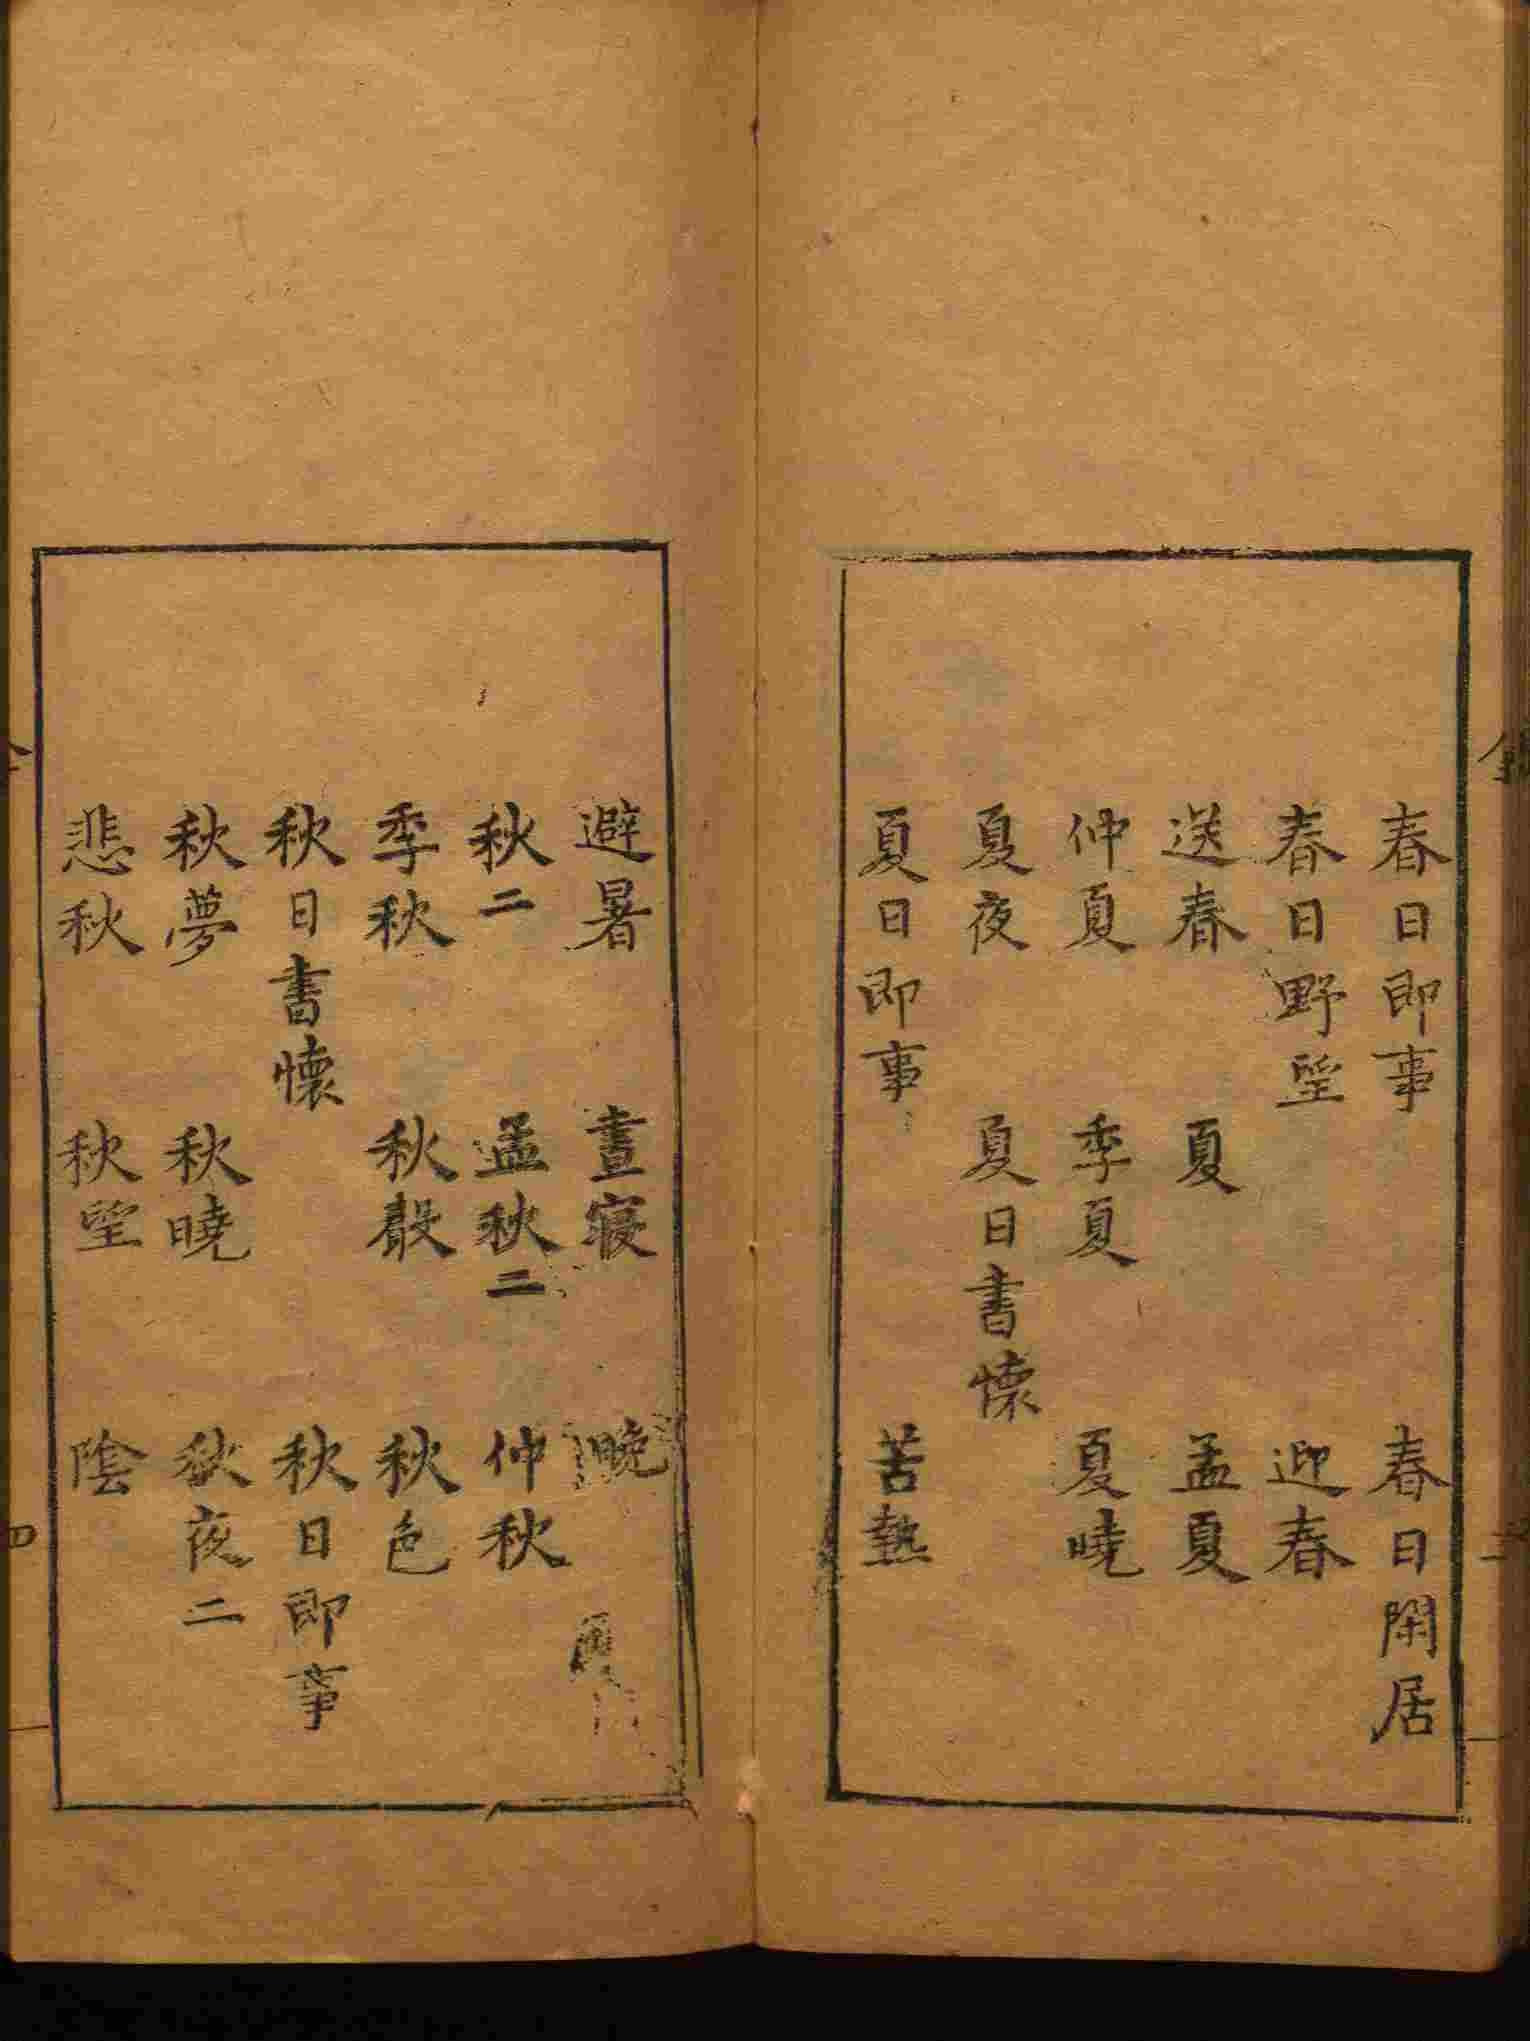 春日即事 春日閑居
春日野望 迎春
送春 夏 孟夏
仲夏 季夏 夏曉
夏夜 夏日書懷
夏日即事 苦熱
避暑 晝寢 晚
秋二 孟秋二 仲秋
季秋 秋聲 秋色
秋日書懷 秋日即事
秋夢 秋曉 秋夜二
悲秋 秋望 陰